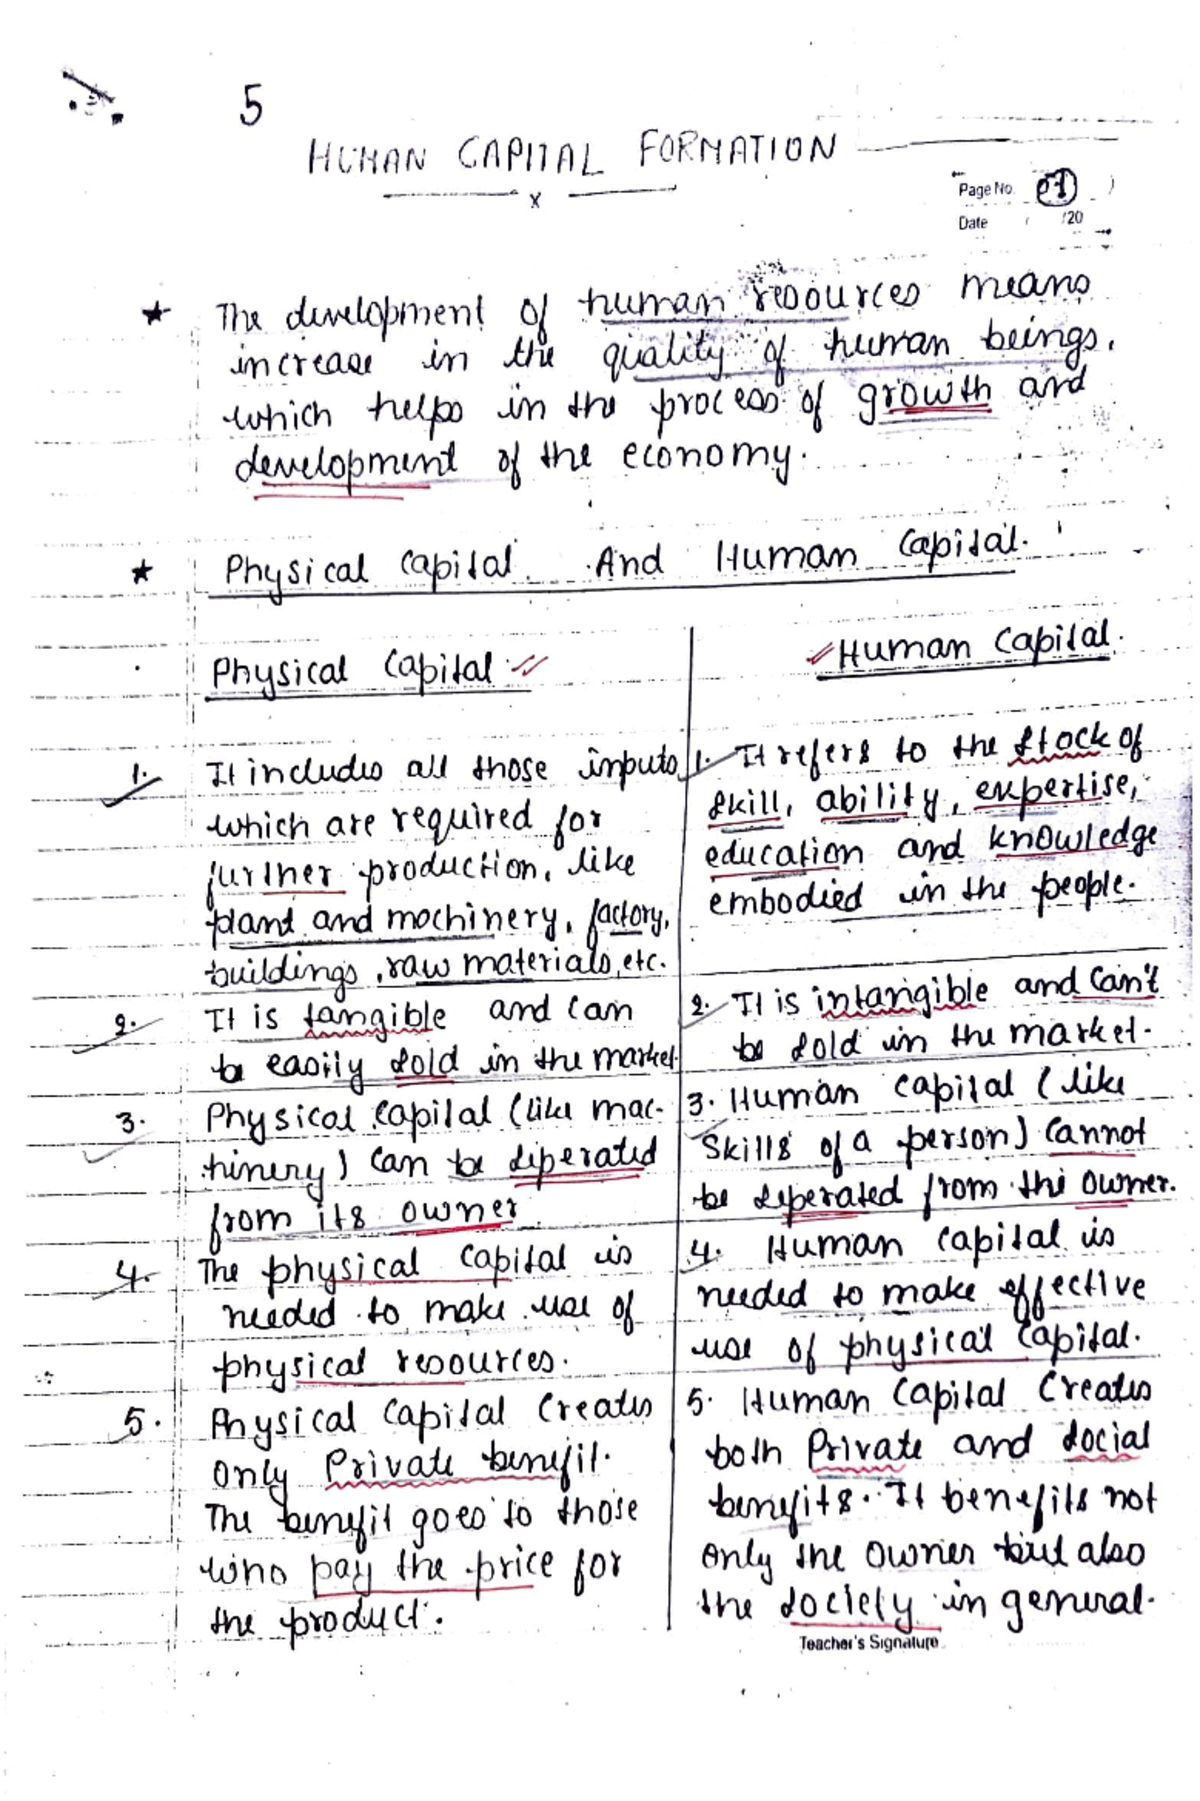 5
HUMAN CAPITAL FORMATION
x
Page No. 01
Date / /20
★ The development of human resources means
increase in the quality of human beings,
which helps in the process of growth and
development of the economy.
★ Physical Capital And Human Capital.
Physical Capital
1. It includes all those inputs
which are required for
further production, like
plant and machinery, factory,
buildings, raw materials, etc.
2. It is tangible and can
be easily sold in the market.
3. Physical Capital (like mac-
hinery) can be seperated
from its owner
4. The physical capital is
needed to make use of
physical resources.
5. Physical Capital Creates
only Private benefit.
The benefit goes to those
who pay the price for
the product.
Human Capital.
1. It refers to the stock of
skill, ability, expertise,
education and knowledge
embodied in the people.
2. It is intangible and can't
be sold in the market.
3. Human capital (like
Skills of a person) cannot
be seperated from the owner.
4. Human capital is
needed to make effective
use of physical Capital.
5. Human Capital Creates
both Private and social
benefits. It benefits not
only the owner but also
the society in general.
Teacher's Signature